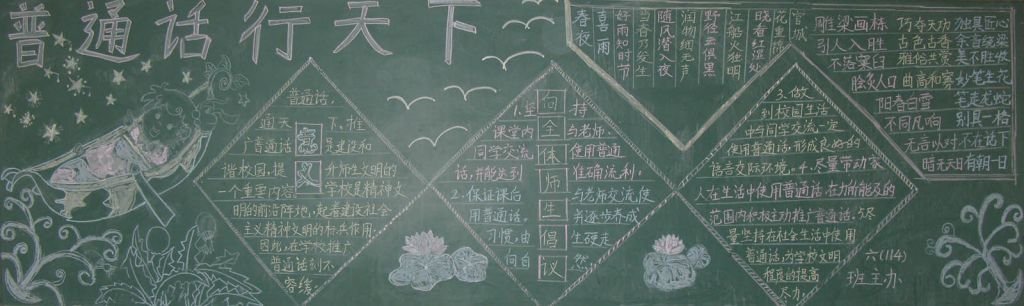 普通话行天下
普通话,
通天下、推
广普通话
是建设和
谐校园,提
升师生文明的
一个重要内容
学校是精神文
明的前沿阵地,起着建设社会
主义精神文明的标兵作用,
因此,在学校推广
普通话刻不
容缓
意义
向全体师生倡议
1.坚
持
课堂内
与老师、
同学交流
使用普通
话,并能达到
准确流利。
2.保证课后
与老师交流使
用普通话。
并逐步养成
习惯,由
生硬走
向自
然。
3.做
到校园生活
中与同学交流一定
使用普通话,形成良好的
语言交际环境。4.尽量带动家
人在生活中使用普通话,在力所能及的
范围内积极主动推广普通话。5.尽
量坚持在社会生活中使用
普通话,为学校文明
程度的提高
尽力。
春夜
喜雨
好雨知时节
当春乃发生
随风潜入夜
润物细无声
野径云俱黑
江船火独明
晓看红湿处
花重锦
官城
雕梁画栋 巧夺天功 独具匠心
引人入胜 古色古香 余音绕梁
不落窠臼 雅俗共赏
脍炙人口 曲高和寡 妙笔生花
阳春白雪 笔走龙蛇
不同凡响 别具一格
六(114)
班主办